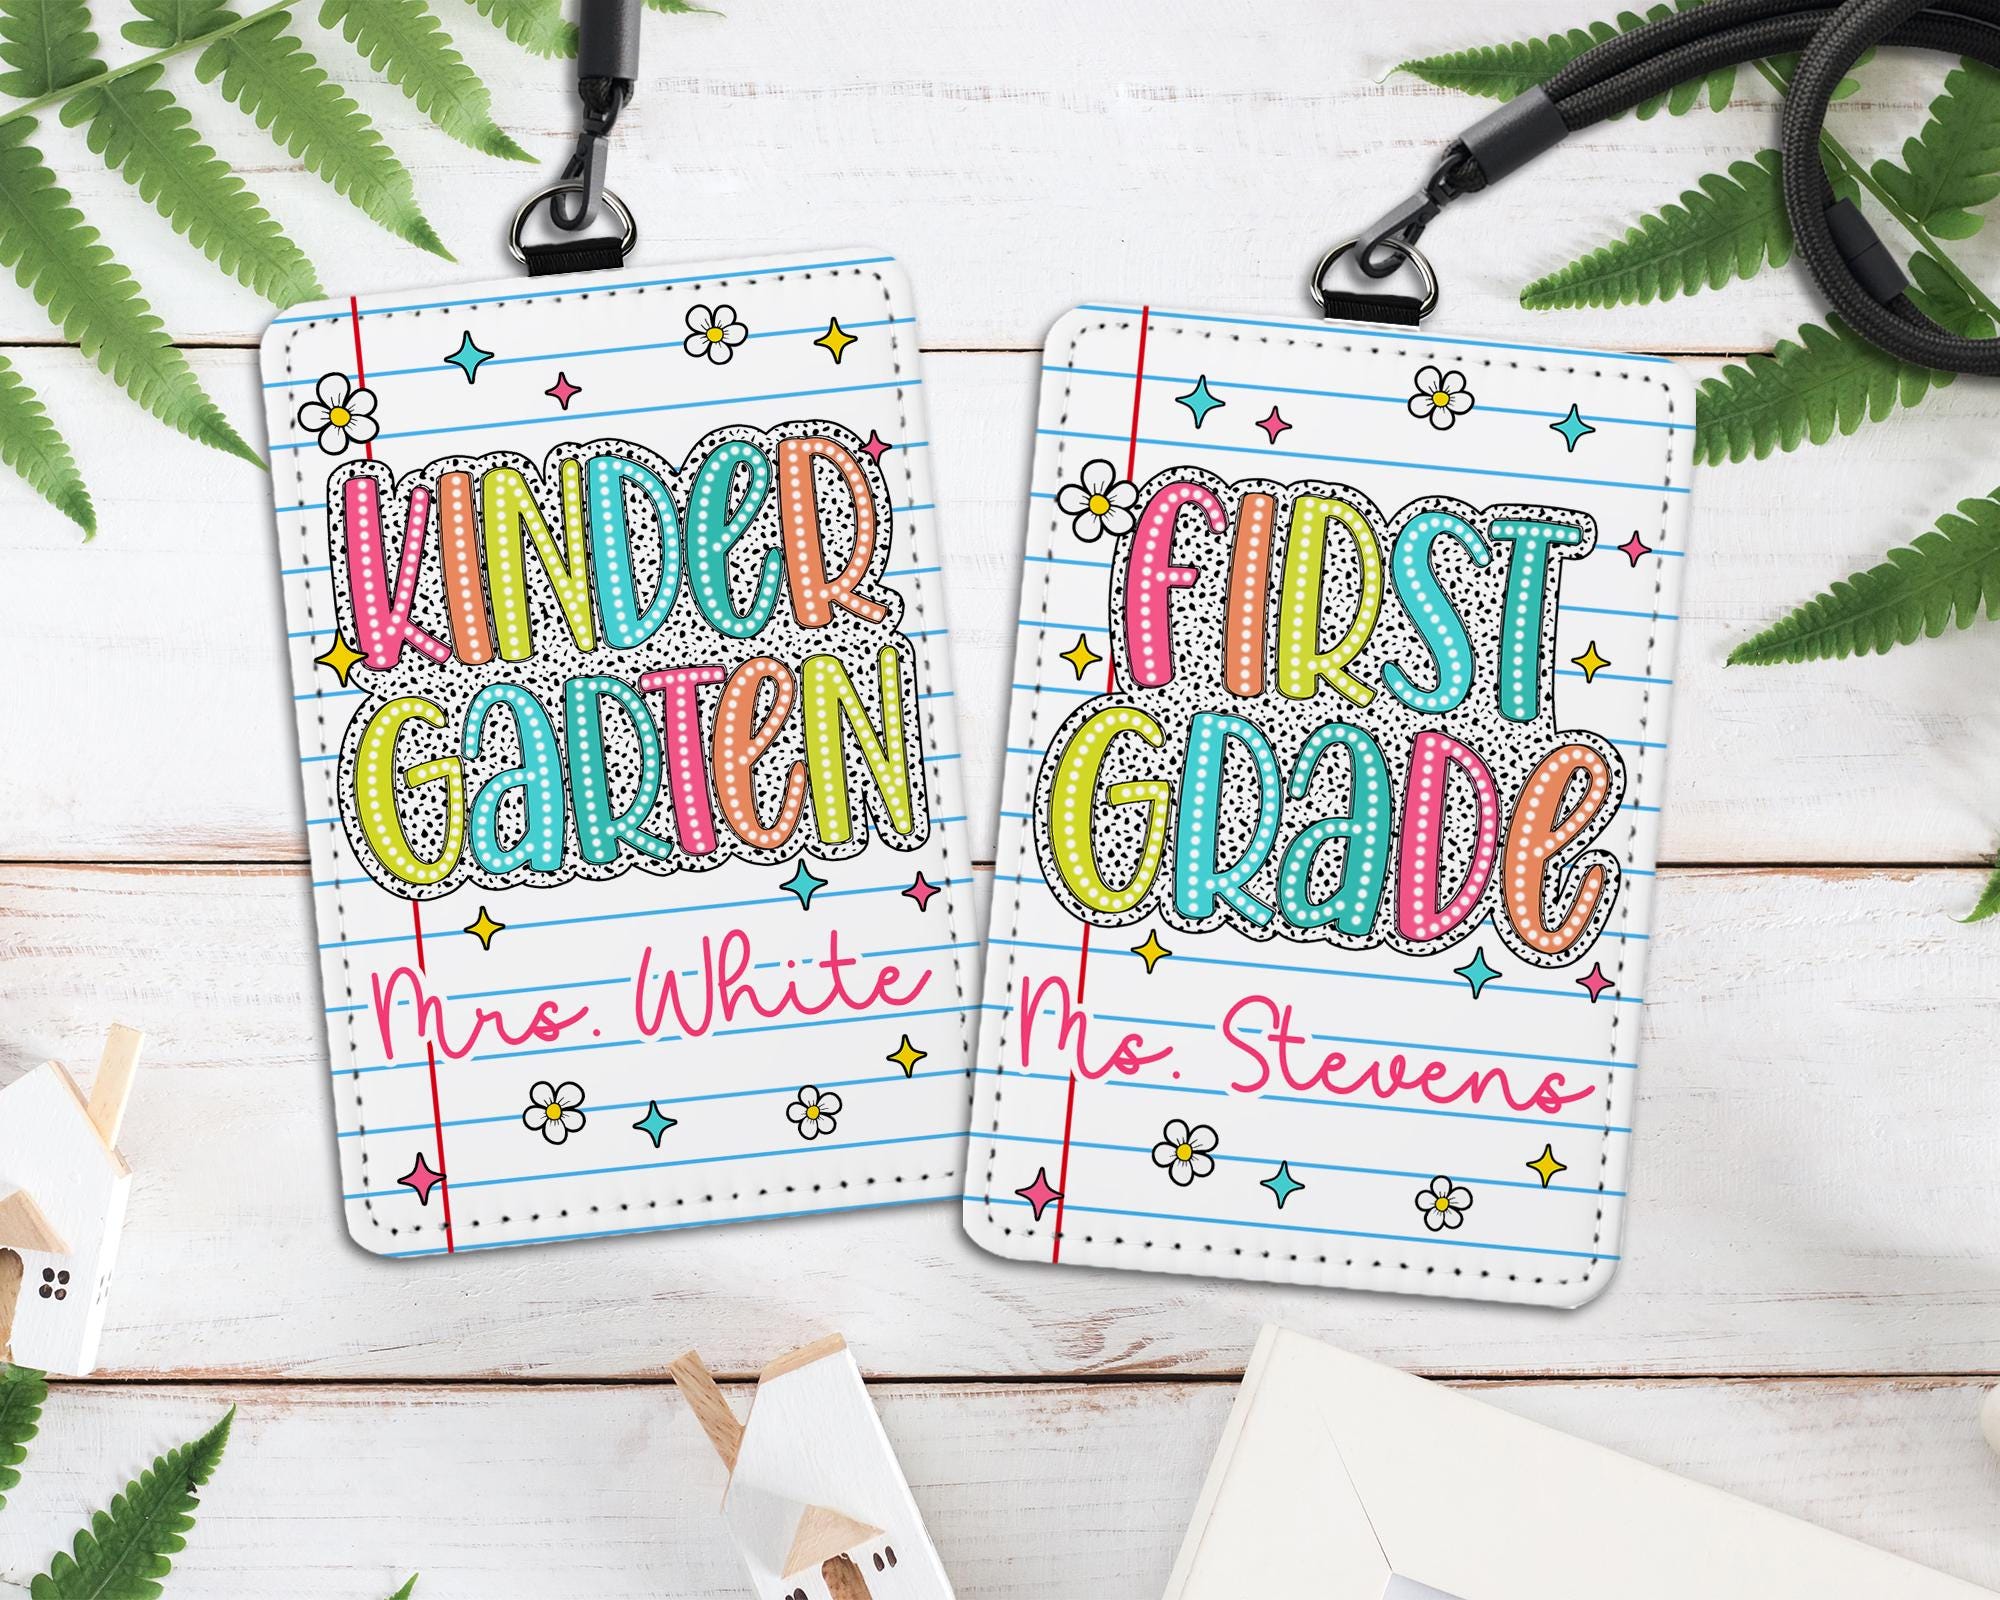 KINDER
GARTEN
Mrs. White
FIRST
GRADE
Ms. Stevens